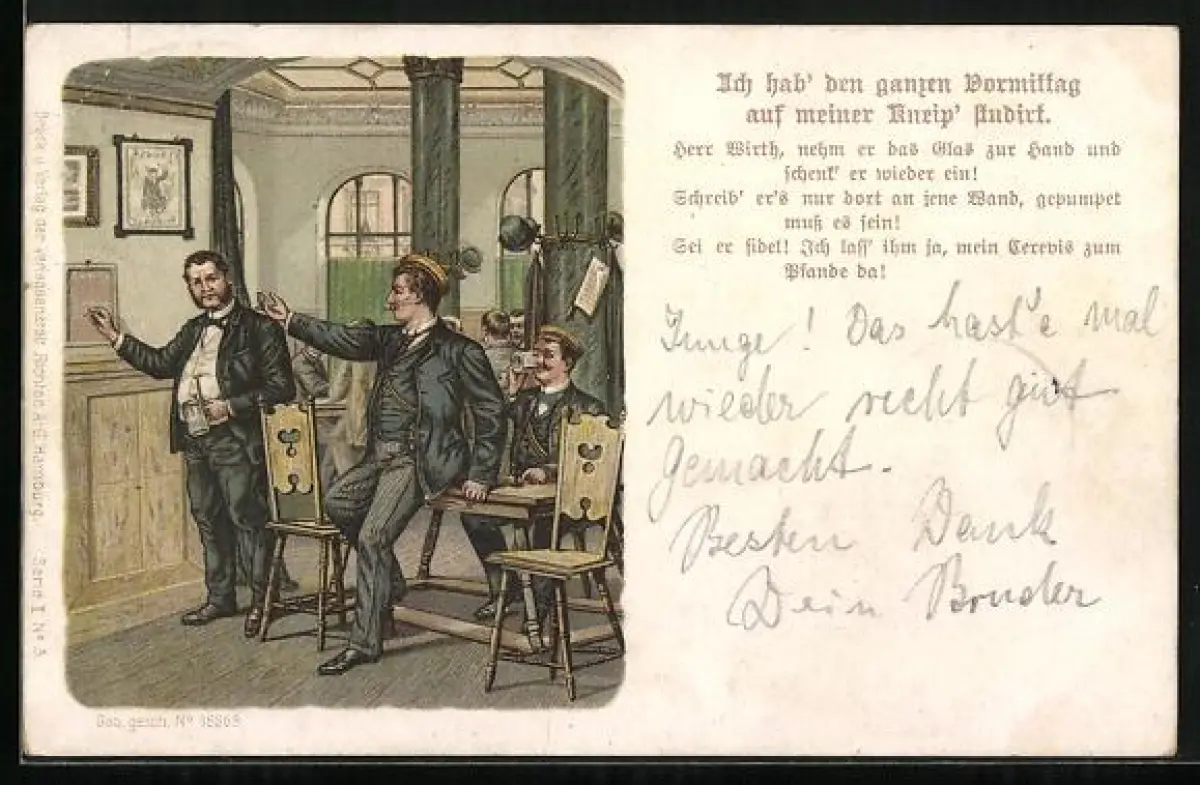 Ich hab' den ganzen Vormittag
auf meiner Kneip' studirt.
Herr Wirth, nehm er das Glas zur Hand und
schenk' er wieder ein!
Schreib' er's nur dort an jene Wand, gepumpet
muß es sein!
Sei er fidel! Ich lass' ihm ja, mein Cerevis zum
Pfande da!
Junge! Das hast'e mal
wieder recht gut
Gemacht.
Besten Dank
Dein Bruder
Druck u. Verlag der Verlagsanstalt A.-G. Hamburg. Serie II No 3.
Ges. gesch. No